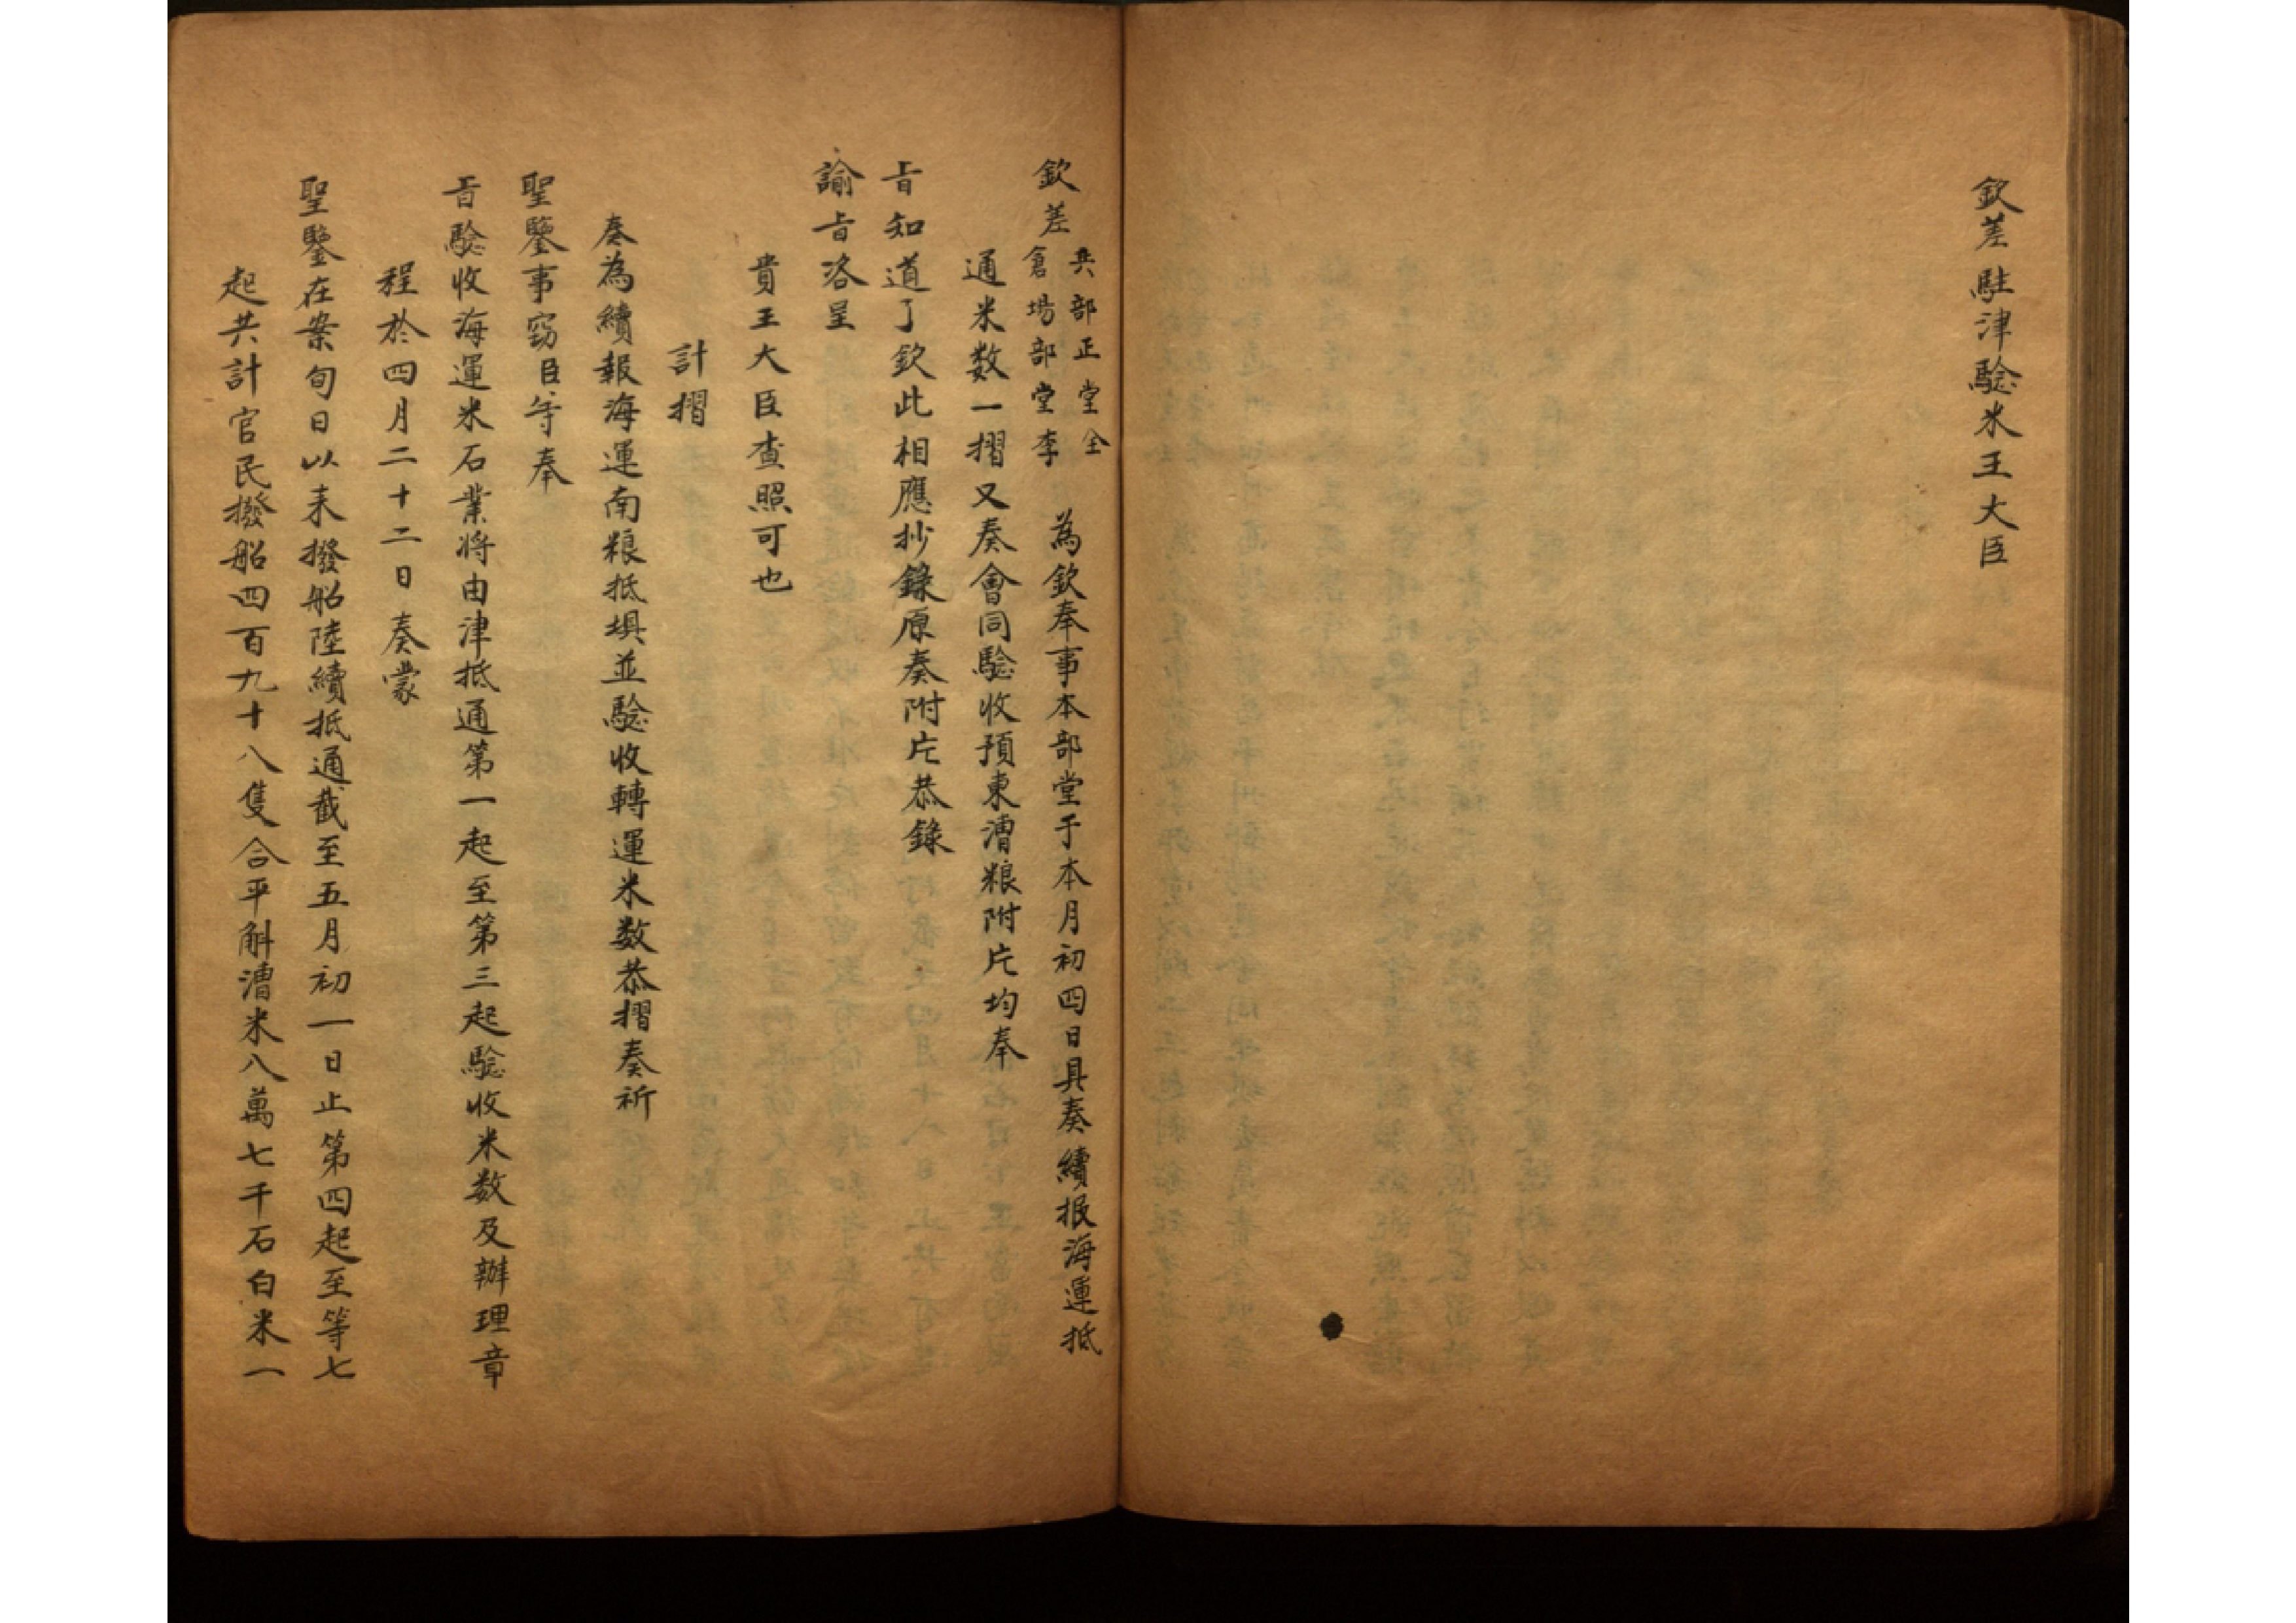 欽差駐津驗米王大臣
欽差
兵部正堂全
倉場部堂李
為欽奉事本部堂于本月初四日具奏續报海運抵
通米数一摺又奏會同驗收預東漕粮附片均奉
旨知道了欽此相應抄錄原奏附片恭錄
諭旨洛呈
貴王大臣查照可也
計摺
奏為續報海運南粮抵埧並驗收轉運米数恭摺奏祈
聖鑒事窃臣等奉
旨驗收海運米石業将由津抵通第一起至第三起驗收米数及辦理章
程於四月二十二日奏蒙
聖鑒在案旬日以来撥船陸續抵通截至五月初一日止第四起至等七
起共計官民撥船四百九十八隻合平斛漕米八萬七千石白米一